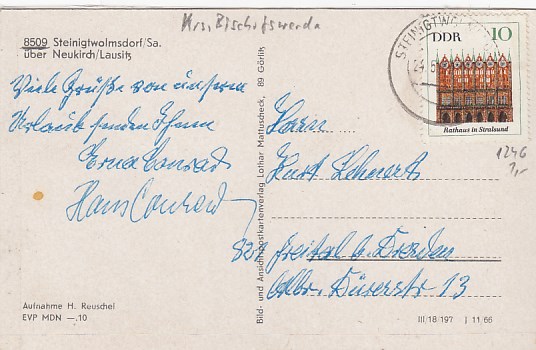 Krs. Bischofswerda
8509 Steinigtwolmsdorf/Sa.
über Neukirch/Lausitz
Viele Grüße von unserm
Urlaub senden Ihnen
Erna Conrad
Hans Conrad
Aufnahme H. Reuschel
EVP MDN —.10
Bild- und Ansichtspostkartenverlag Lothar Mattuscheck, 89 Görlitz
DDR 10
Rathaus in Stralsund
STEINIGTWO
1246
1,-
Herrn
Kurt
821 Freital b. Dresden
Albr. Dürerstr 13
III/18/197 J 11/66